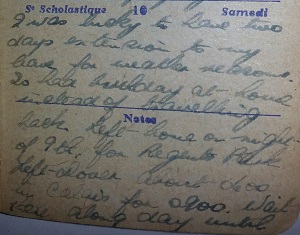 Sᵗ Scholastique 10 Samedi
I was lucky to have two
days extension to my
leave for weather reasons.
So had birthday at-home
instead of travelling
Notes
back. Left-home on night-
of 9th, for Regents Park
Left-Dover about 0600.
in Calais for 0900. Wait
here along day until